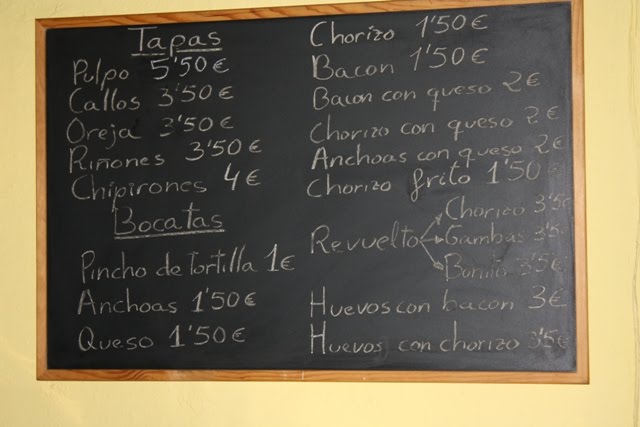 Tapas
Pulpo 5'50€
Callos 3'50€
Oreja 3'50€
Riñones 3'50€
Chipirones 4€
Bocatas
Pincho de Tortilla 1€
Anchoas 1'50€
Queso 1'50€
Chorizo 1'50€
Bacon 1'50€
Bacon con queso 2€
Chorizo con queso 2€
Anchoas con queso 2€
Chorizo frito 1'50€
Revuelto
Chorizo 3'5€
Gambas 3'5
Bonito 3'5€
Huevos con bacon 3€
Huevos con chorizo 3'5€